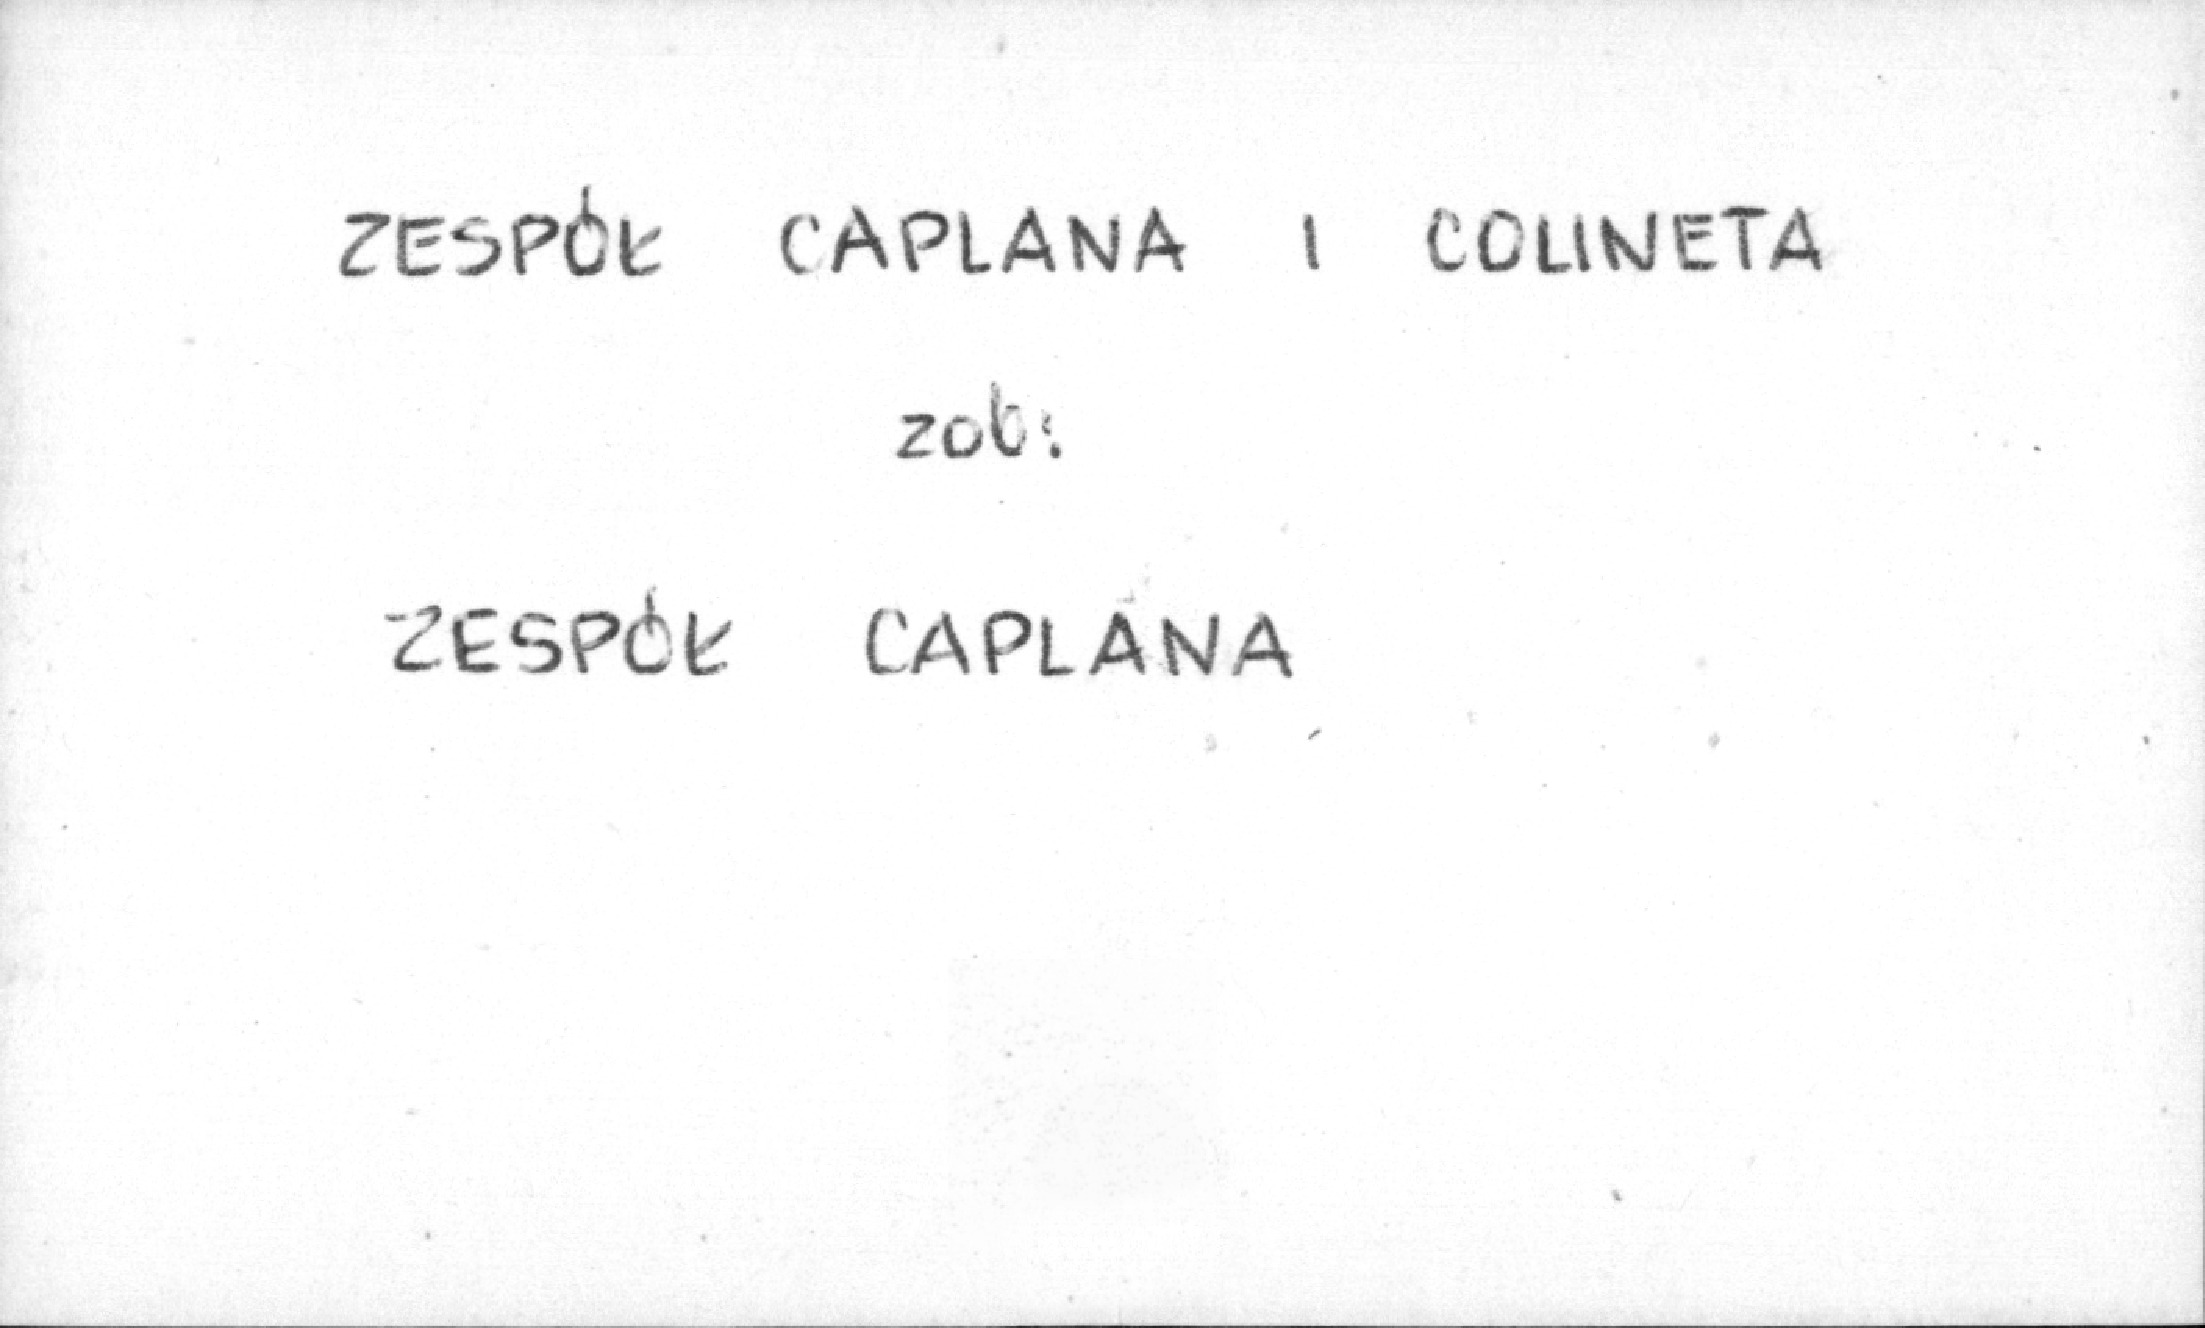 ZESPÓŁ CAPLANA I COLINETA
zob:
ZESPÓŁ CAPLANA